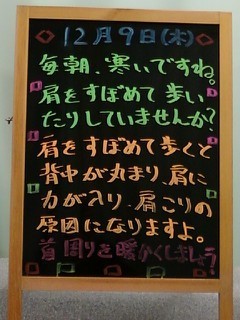 12月9日(木)
毎朝、寒いですね。
肩をすぼめて歩い
たりしていませんか?
肩をすぼめて歩くと
背中が丸まり、肩に
力が入り、肩こりの
原因になりますよ。
首周りを暖かくしましょう!